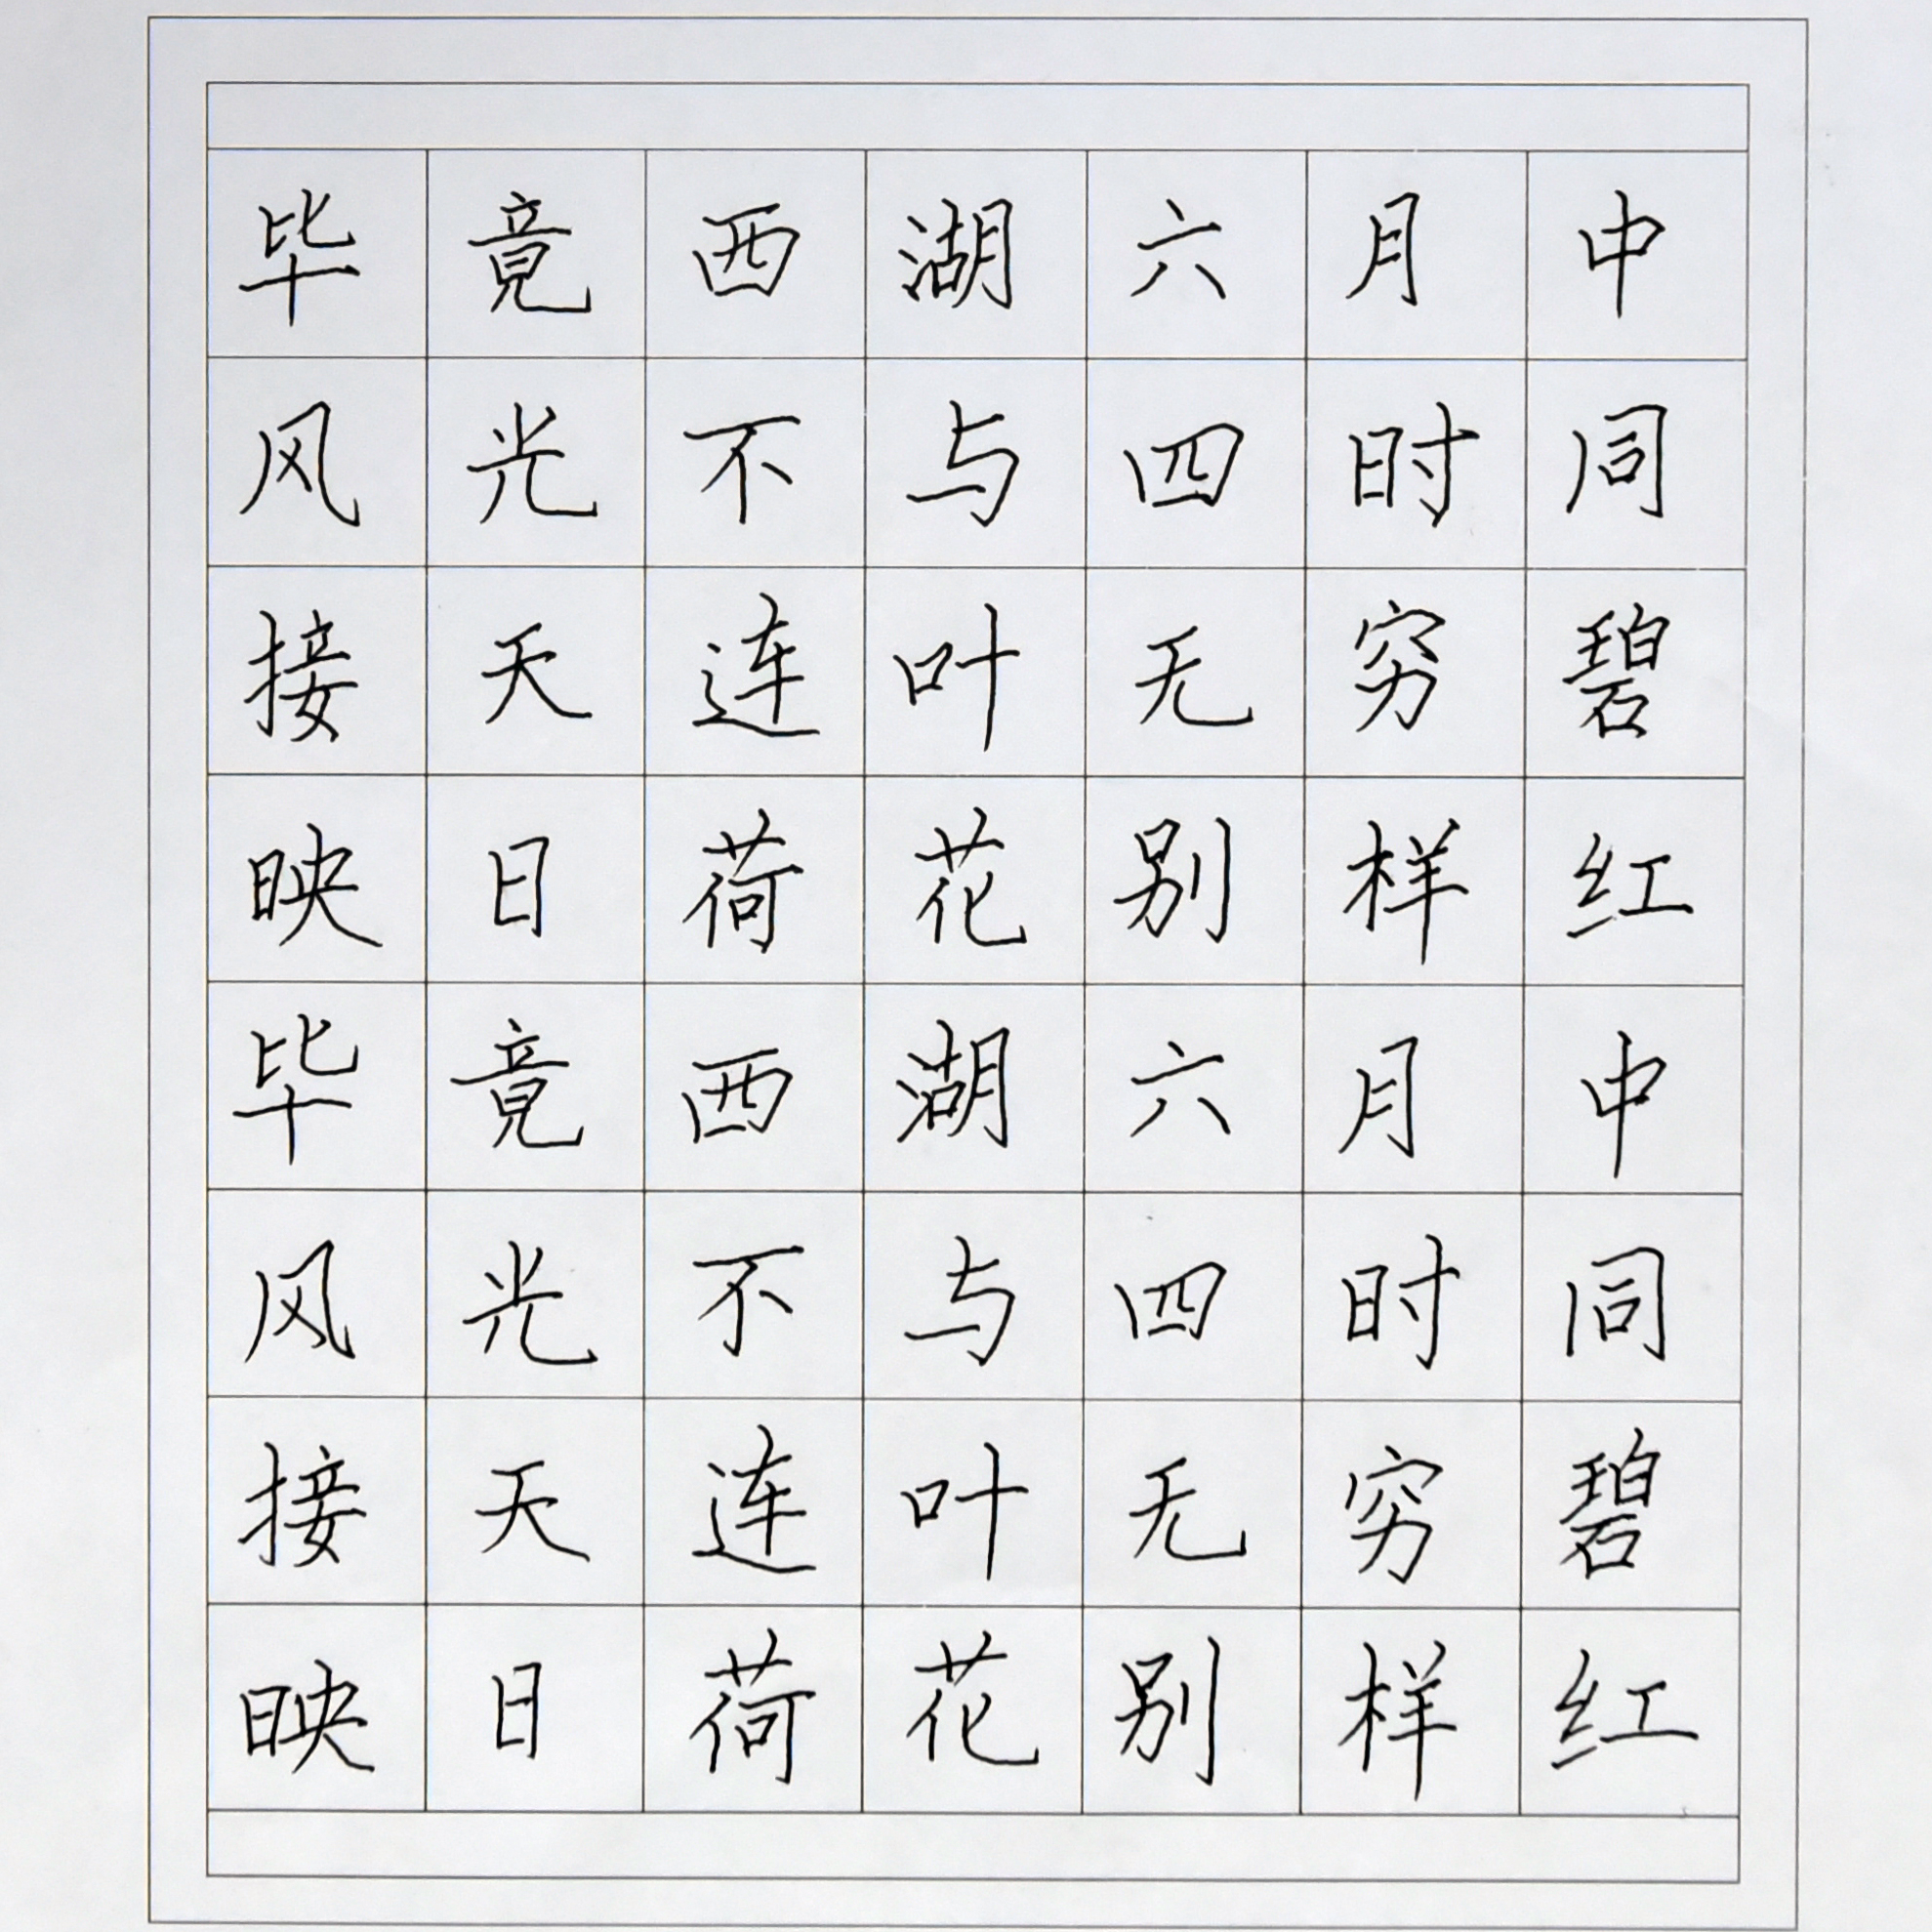 毕竟西湖六月中
风光不与四时同
接天连叶无穷碧
映日荷花别样红
毕竟西湖六月中
风光不与四时同
接天连叶无穷碧
映日荷花别样红